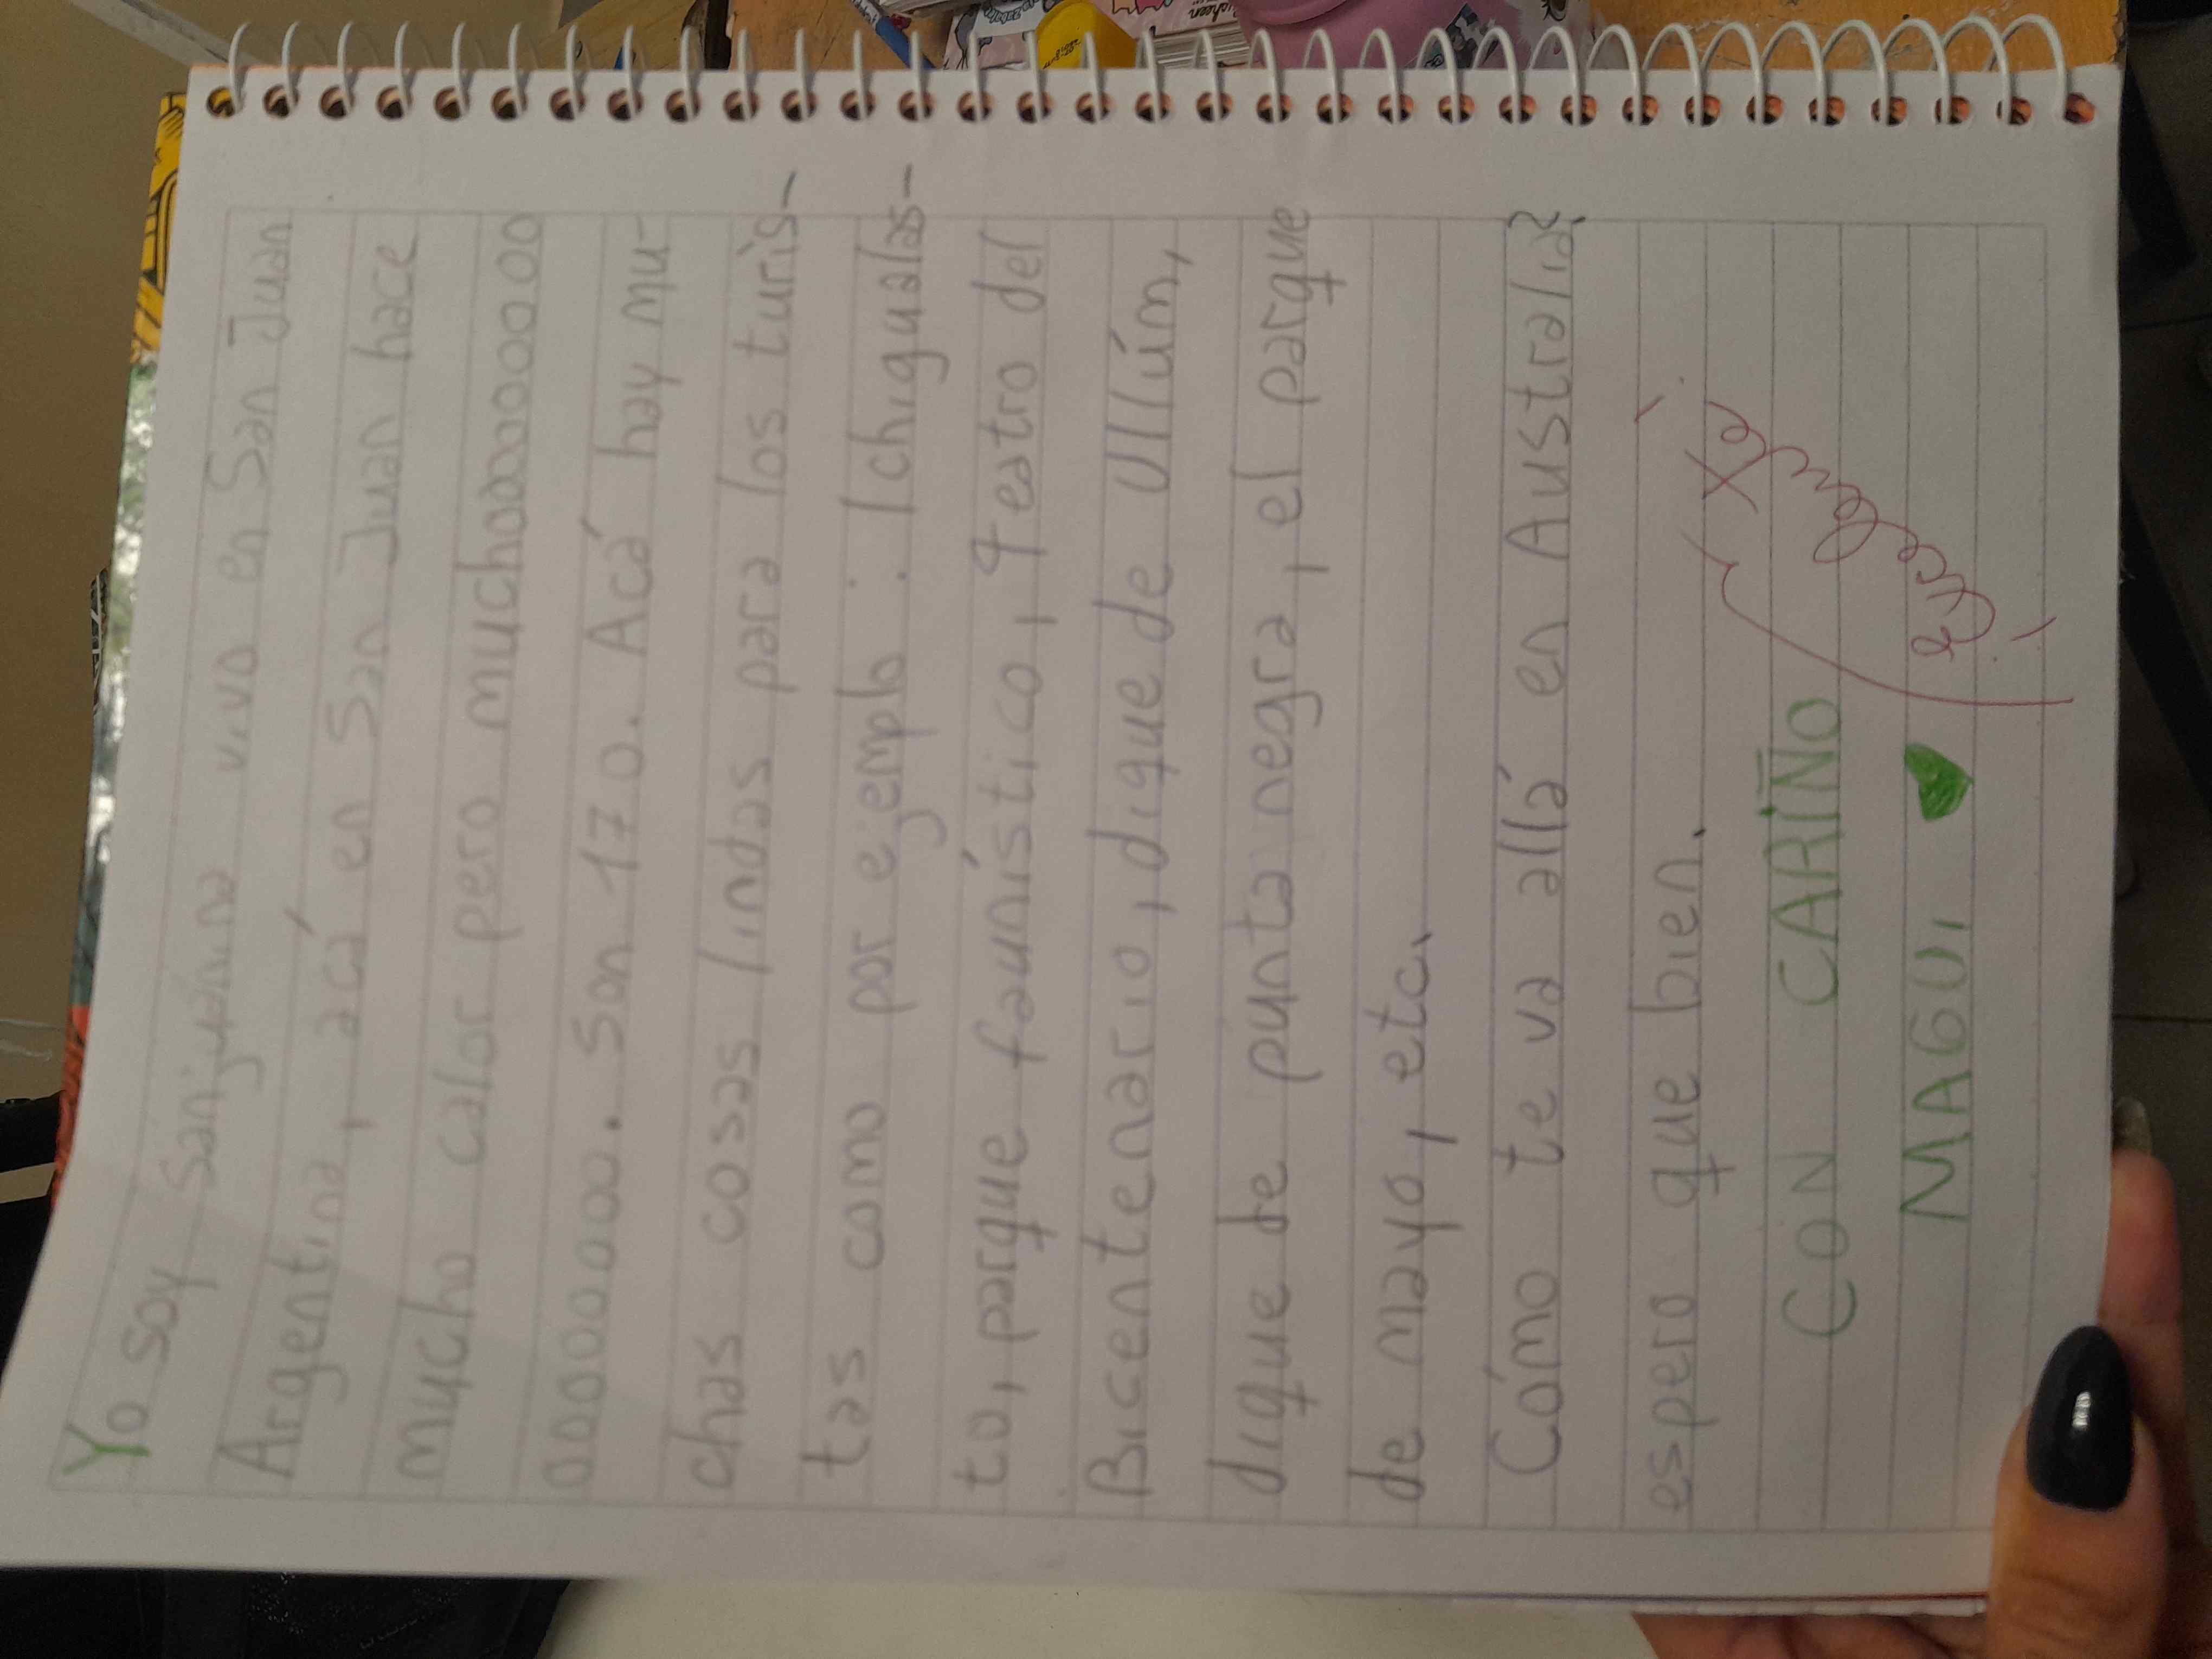 Yo soy sanjuanina vivo en San Juan
Argentina, acá en San Juan hace
mucho calor pero muchooooooooooo
oooooooooo. Son 17 0. Acá hay mu-
chas cosas lindas para los turis-
tas como por ejemplo: Ichigualas-
to, parque faunístico, Teatro del
Bicentenario, dique de Ullúm,
dique de punta negra, el parque
de mayo, etc.
Cómo te va allá en Australia?
espero que bien.
CON CARIÑO
MAGUI
¡Excelente!